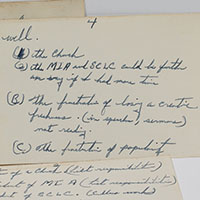 4
well.
(A) the Church
② the M.I.A and SCLC could be further
on say if I had more time
(B) the frustration of being a creative
freshness. (in speeches, sermons)
not reading
(C) the frustration of popularity
of a Church (List responsibilities)
of MIA (List responsibilities)
of SCLC.